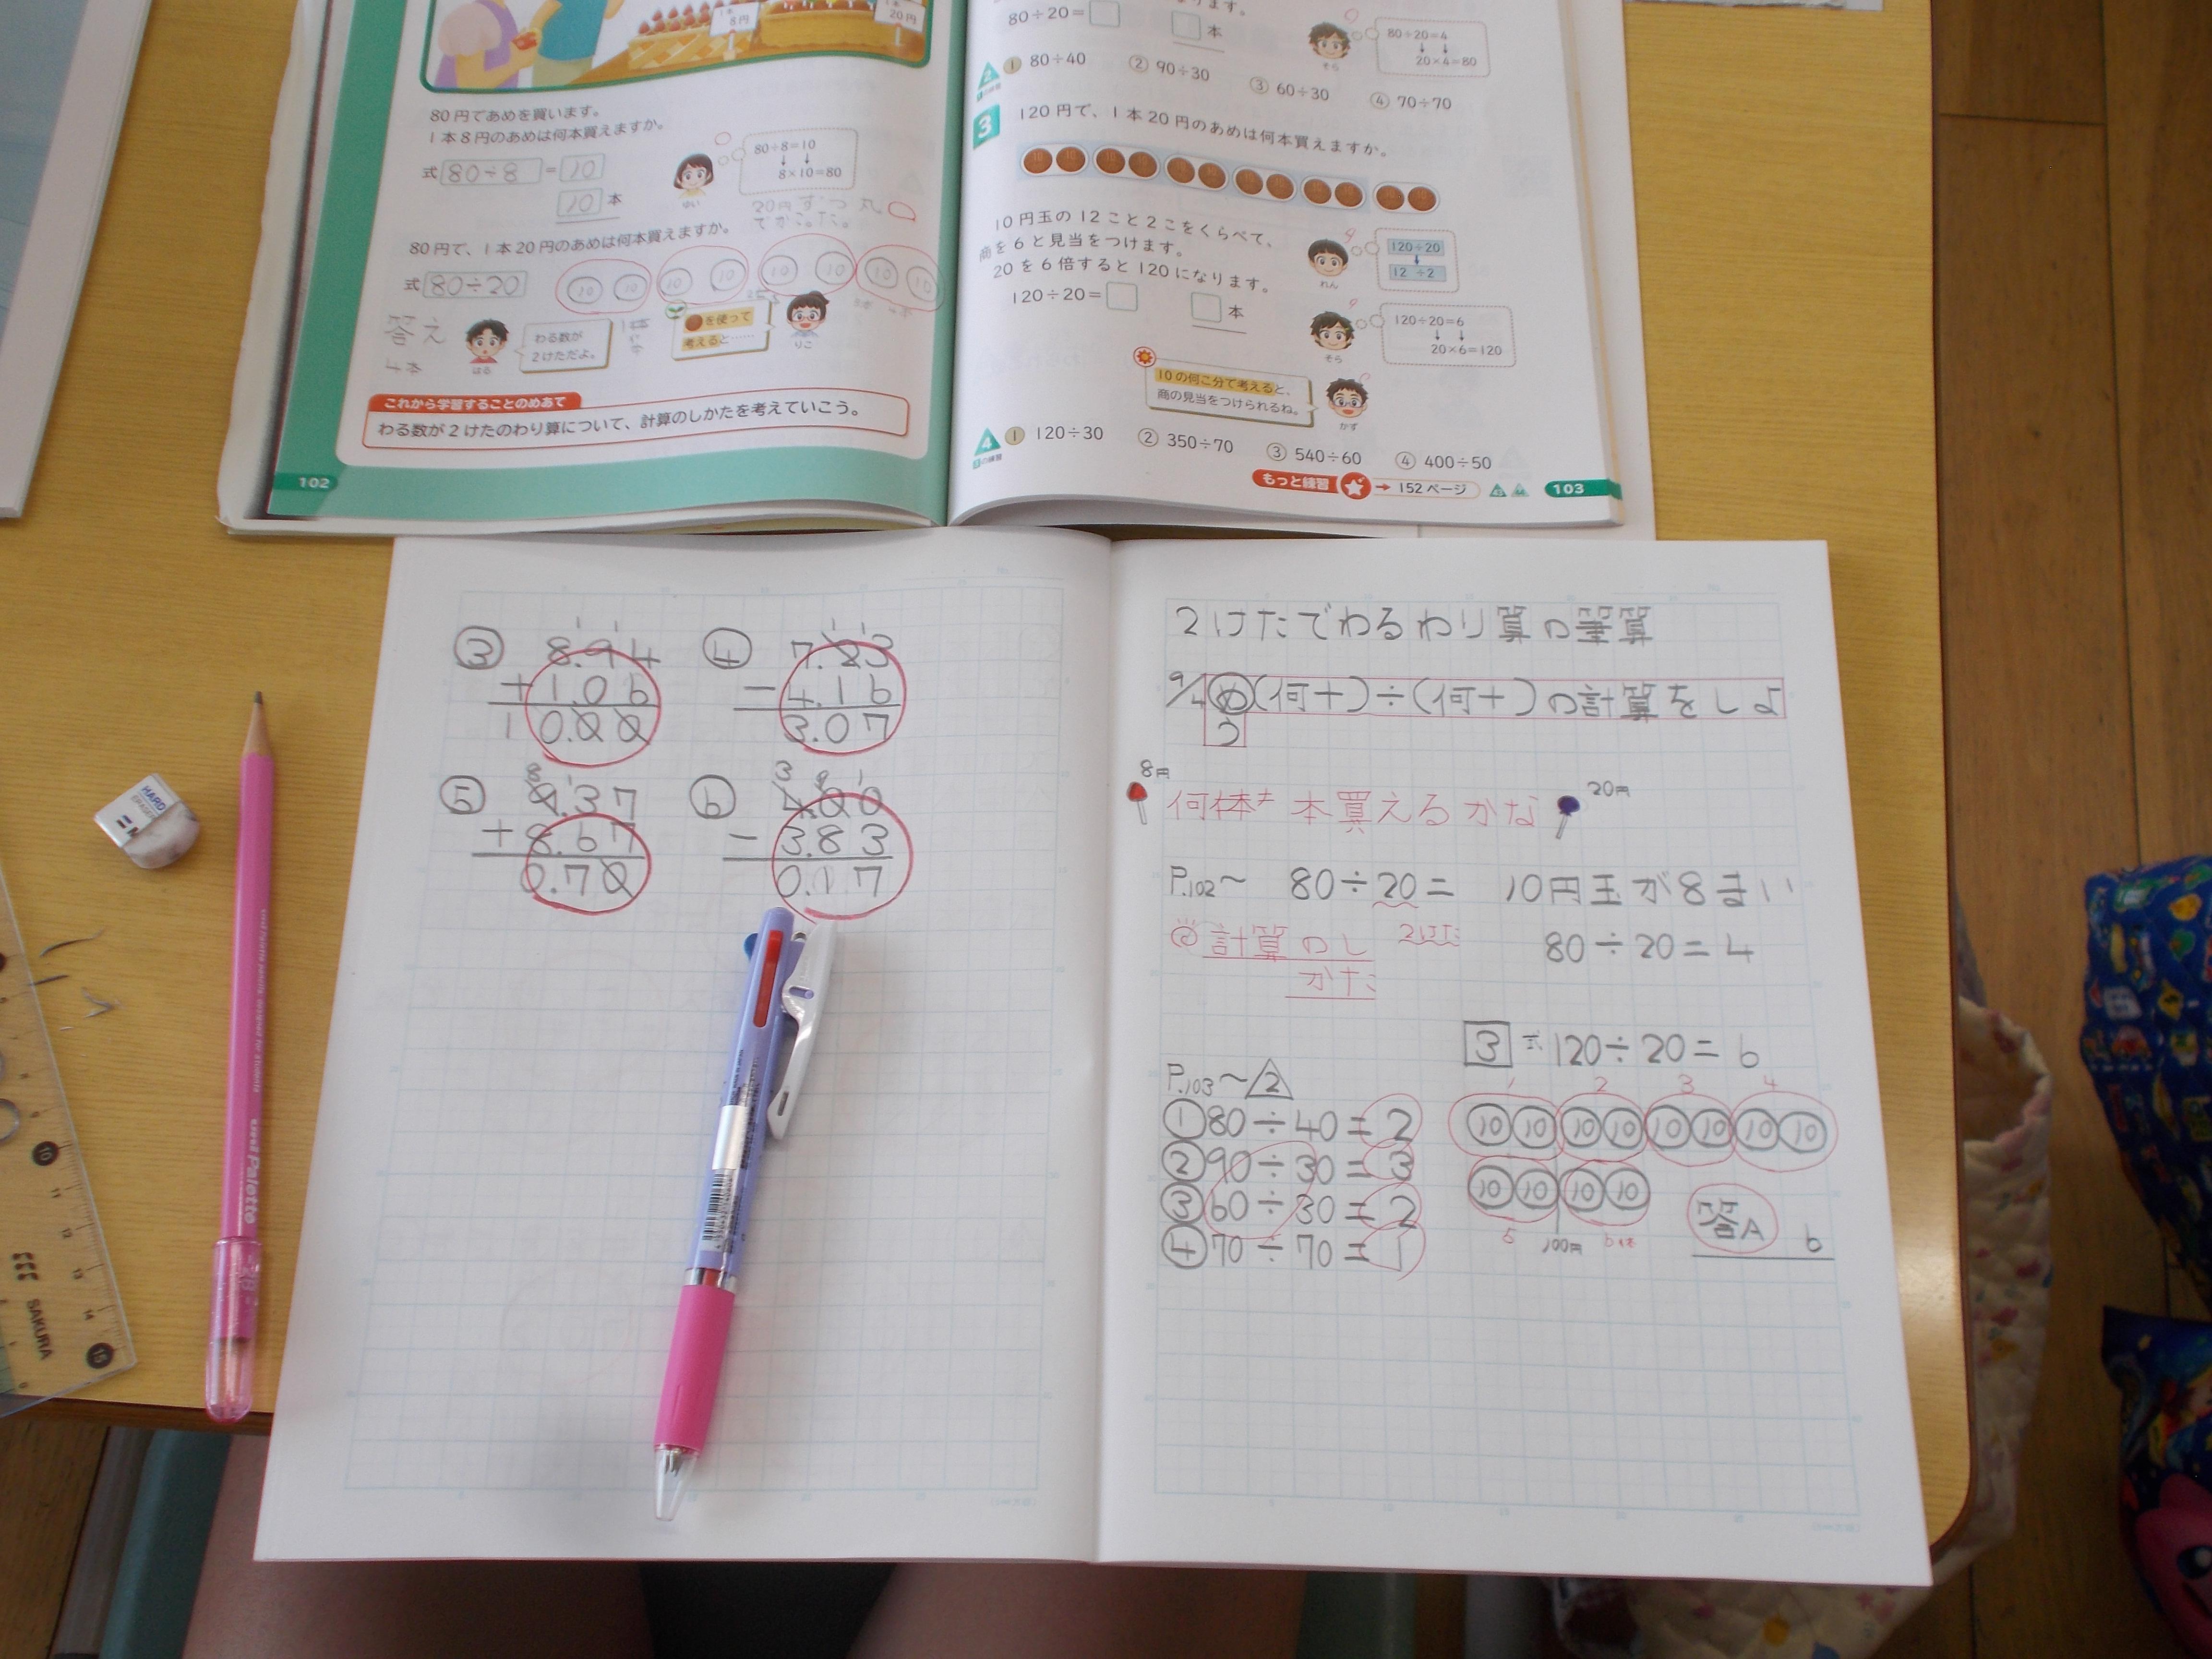 1本
8円
1本
20円
80円であめを買います。
1本8円のあめは何本買えますか。
式 80÷8 = 10
10 本
80÷8=10
8×10=80
ゆい
20円ずつ丸
でかこった。
80円で、1本20円のあめは何本買えますか。
式 80÷20
10 10 10 10 10 10 10 10
答え
4本
わる数が
2けただよ。
はる
を使って
考えると……
りこ
これから学習することのめあて
わる数が2けたのわり算について、計算のしかたを考えていこう。
102
80÷20=
本
80÷20=4
20×4=80
そら
2
① 80÷40 ② 90÷30 ③ 60÷30 ④ 70÷70
3 120円で、1本20円のあめは何本買えますか。
10円玉の12こと2こをくらべて、
商を6と見当をつけます。
20を6倍すると120になります。
120÷20=
本
120÷20
12÷2
れん
120÷20=6
20×6=120
そら
10の何こ分で考えると、
商の見当をつけられるね。
かず
4
① 120÷30 ② 350÷70 ③ 540÷60 ④ 400÷50
もっと練習 → 152ページ
103
③ 8.94
+1.06
10.00
④ 7.23
-4.16
3.07
⑤ 9.37
+8.67
0.70
⑥ 4.00
-3.83
0.17
2けたでわるわり算の筆算
9/4 め(何十)÷(何十)の計算をしよ
う
8円
何本 本買えるかな
20円
P.102〜 80÷20= 10円玉が8まい
計算のし
かた
2けた
80÷20=4
3 式 120÷20=6
1 2 3 4
10 10 10 10 10 10 10 10
10 10 10 10
5 100円 6本
答A 6
P.103〜 2
①80÷40=2
②90÷30=3
③60÷30=2
④70÷70=1
HARD
uni Palette
SAKURA
10
11
12
13
14
15